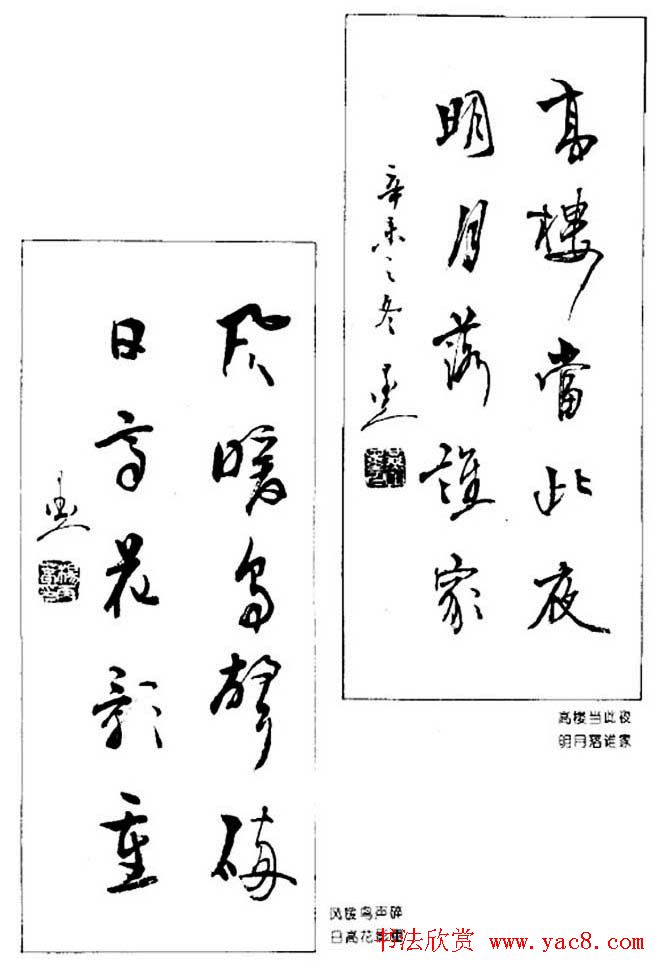 高樓當此夜
明月落誰家
辛未之冬
高楼当此夜
明月落谁家
风暖鸟声碎
日高花影重
风暖鸟声碎
日高花影重
书法欣赏 www.yac8.com